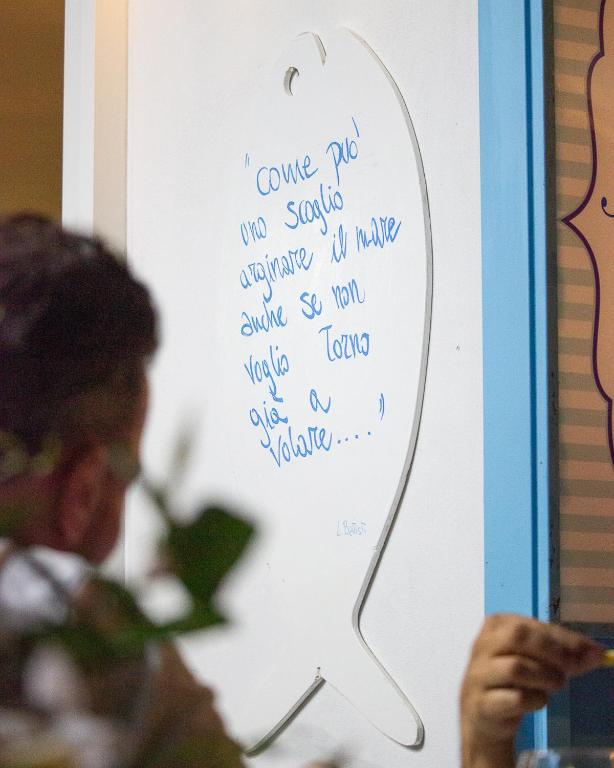 "come può
uno scoglio
arginare il mare
anche se non
voglio Torno
già a
volare...."
L. Battisti